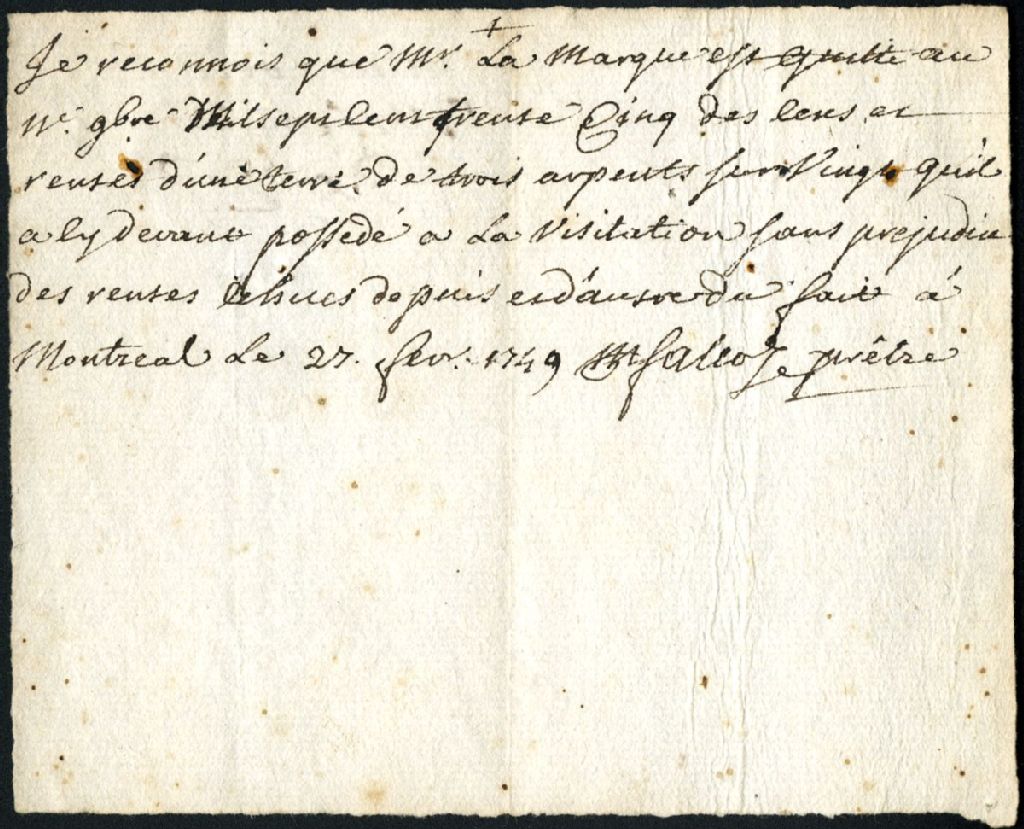 +
Je reconnois que Mr. La Marque est quitte au
11e. 9bre Mil sept cent trente Cinq des cens et
rentes d'une terre de trois arpents sur Vingt qu'il
a cy devant possedé a La Visitation sans prejudice
des rentes échues depuis et d'autre du fait á
Montreal Le 27. fevr. 1749 prêtre